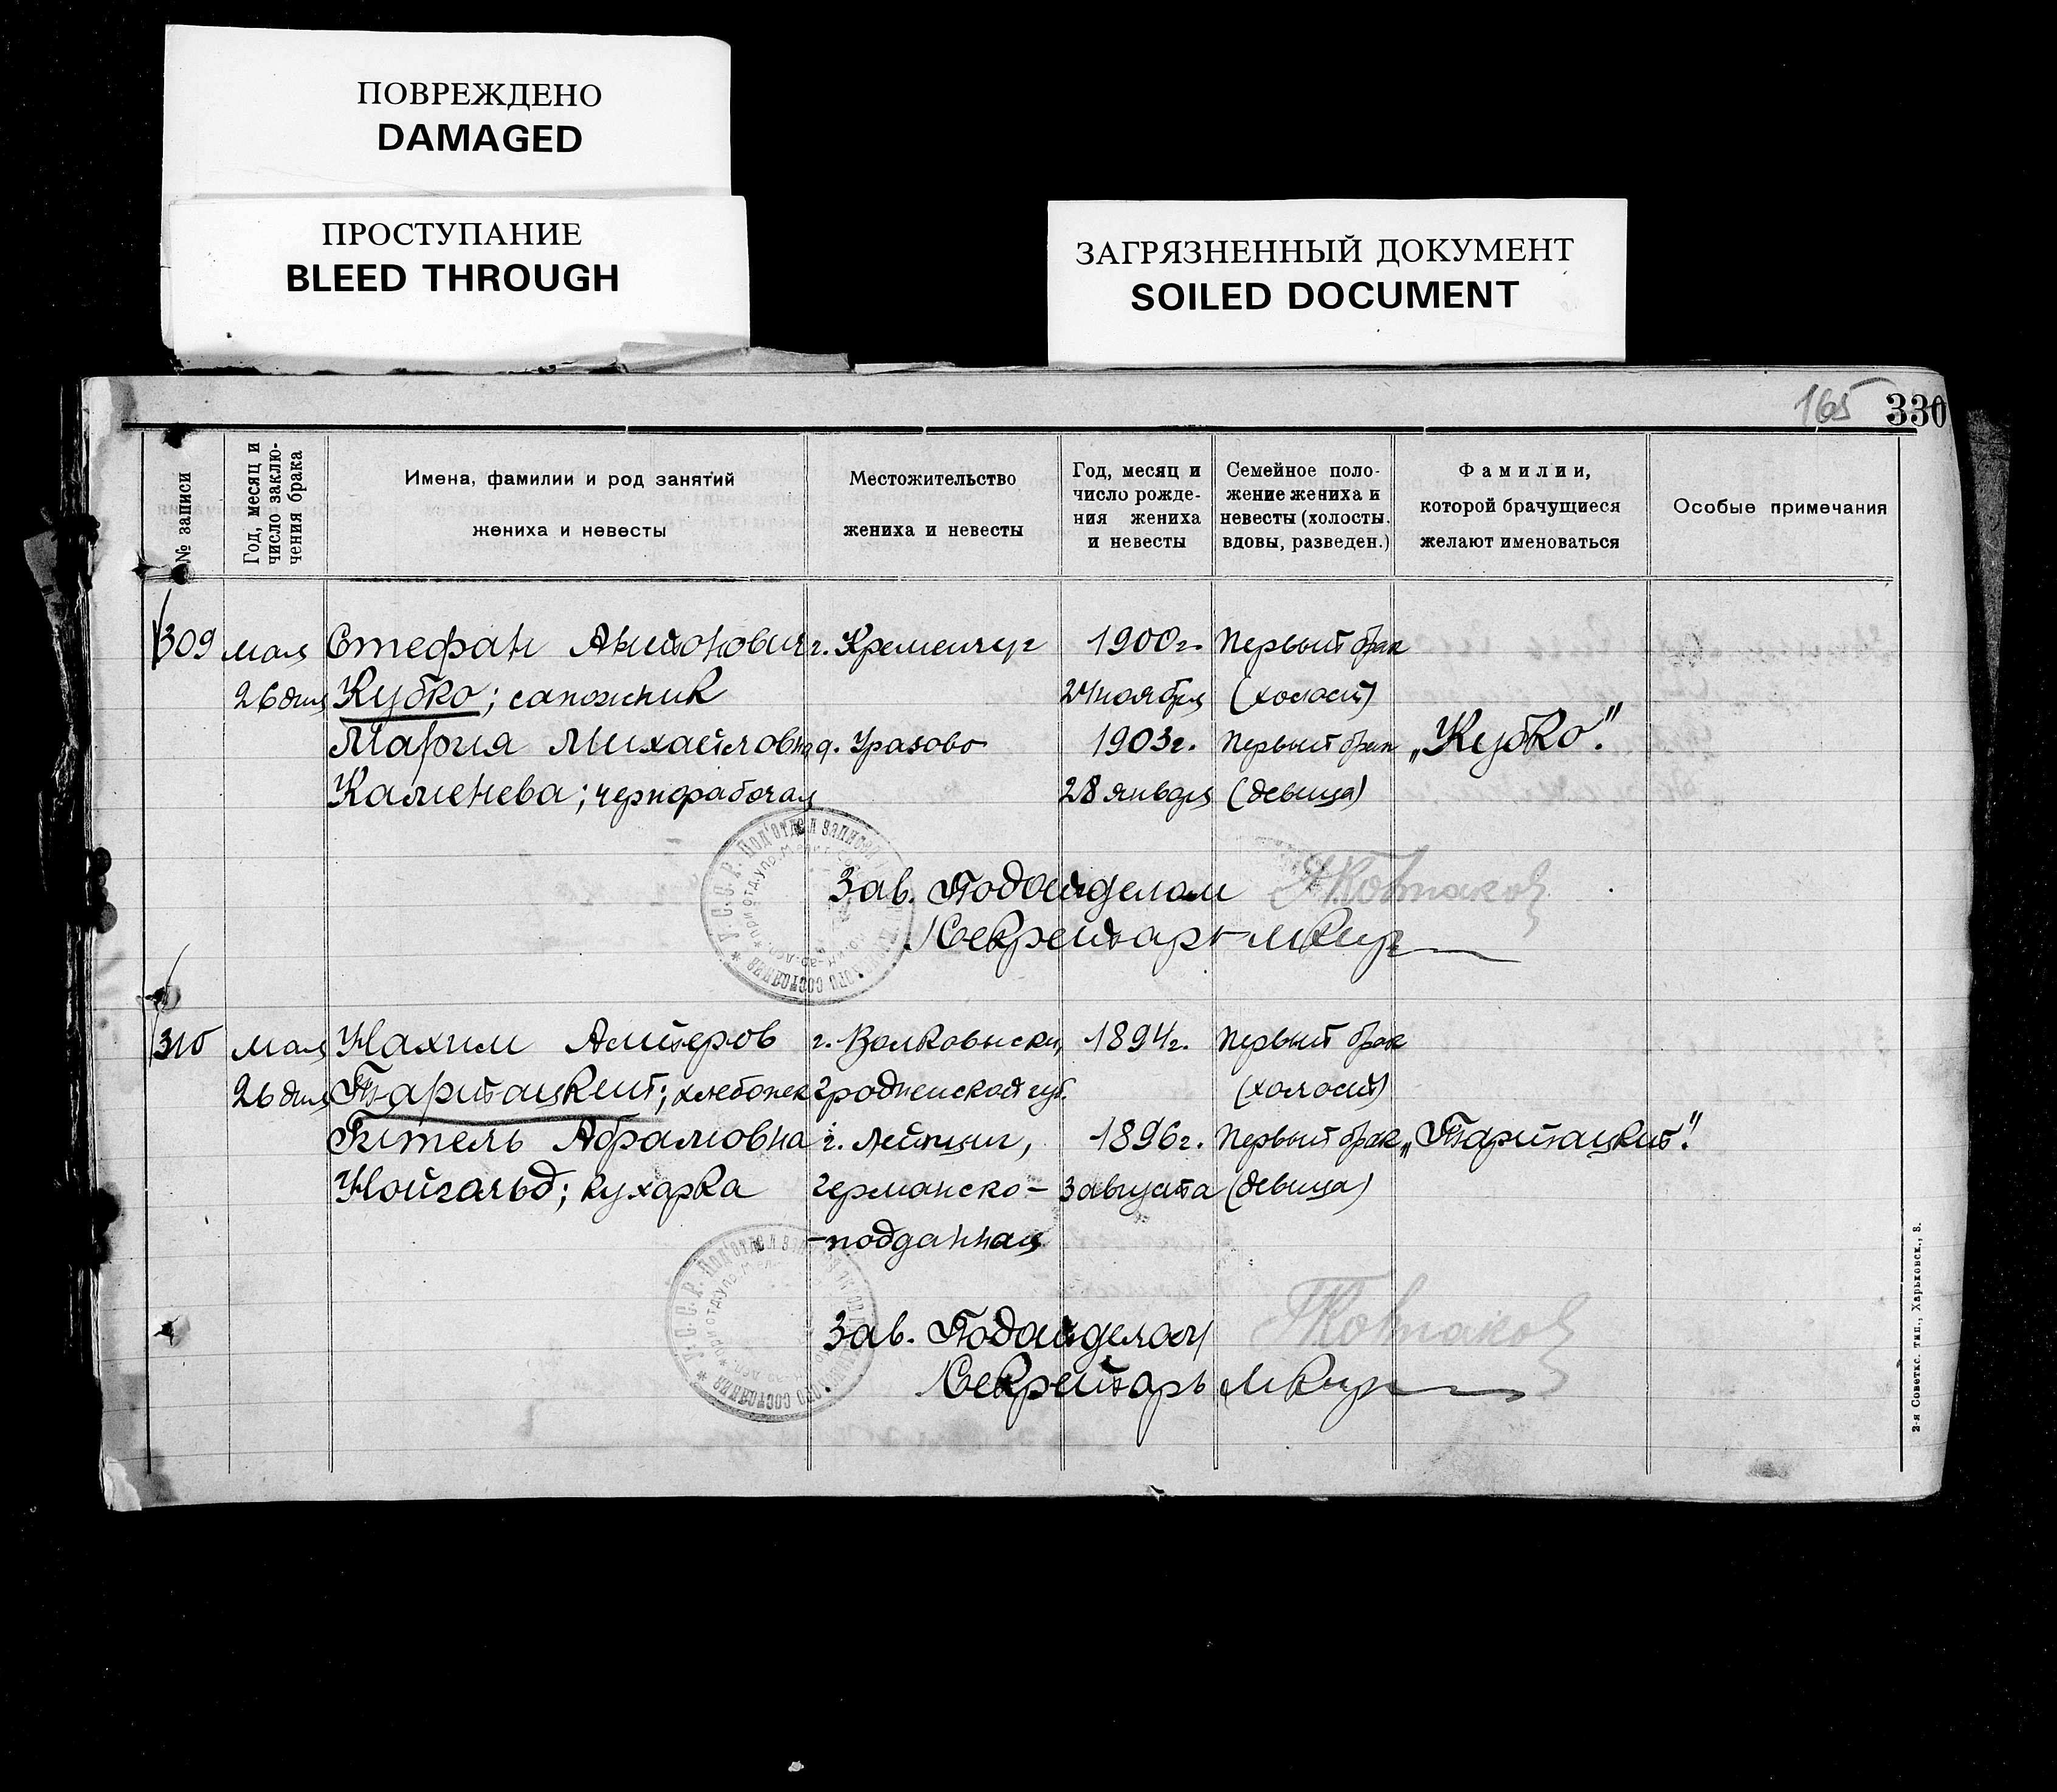 ПОВРЕЖДЕНО
DAMAGED
ПРОСТУПАНИЕ
BLEED THROUGH
ЗАГРЯЗНЕННЫЙ ДОКУМЕНТ
SOILED DOCUMENT
165 330
№ записи
Год, месяц и
число заклю-
чения брака
Имена, фамилии и род занятий
жениха и невесты
Местожительство
жениха и невесты
Год, месяц и
число рожде-
ния жениха
и невесты
Семейное поло-
жение жениха и
невесты (холосты,
вдовы, разведен.)
Фамилии,
которой брачущиеся
желают именоваться
Особые примечания
309 мая Стефан Антонович г. Кременчуг 1900г. Первый брак
26 дня Кубко; сапожник 24 ноября (холост)
Мария Михайловна д. Уразово 1903г. Первый брак „Кубко".
Каменева; чернорабочая 28 января (девица)
Зав. Подотделом
Секретарь
310 мая Нахим г. Волковыски, 1894г. Первый брак
26 дня Партацкий; хлебопек Гродненской губ. (холост)
Гитель Абрамовна г. Лейпциг, 1896г. Первый брак „Партацкий".
Нойгальд; кухарка германско- 3 августа (девица)
-подданная
Зав. Подотделом
Секретарь
У.С.С.Р. Под'отдел записей
состояния
У.С.С.Р. Под'отдел
состояния
2-я Советск. тип., Харьковск., 8.